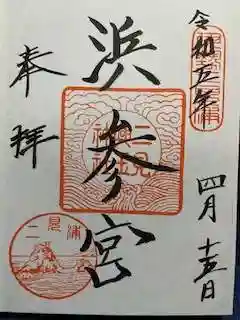 令和五年
四月十五日
浜参宮
奉拝
二見
興玉
神社
二見浦